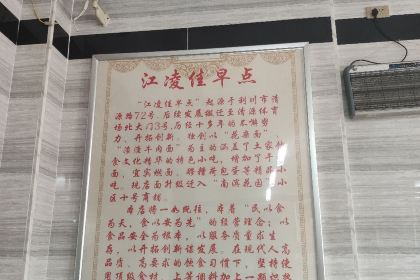 江凌佳早点
“江凌佳早点”起源于利川市清
源路72号,后续发展搬迁至清源体育
场北大门3号,历经十多年的不懈努
力、开拓创新。独创以“花菜面”、
“清汤牛肉面”为主的涵盖了土家饮
食文化精华的特色小吃,增加了干
面、宜宾燃面、醪糟荷包蛋等精品小
吃。现店面升级迁入“南滨花园”小
区十号商铺。
本店将一如既往,本着“民以食
为天,食以安为先”的经营理念;以
食品安全为根本,以服务质量求生
存,以开拓创新谋发展。在现代人高
品质、高要求的饮食习惯下,坚持使
用顶级食材、上等调料加上一颗炽热